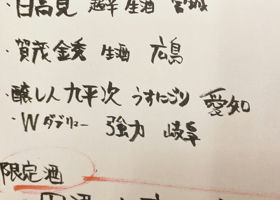 ・日高見 超辛 生酒 宮城
・賀茂金秀 生酒 広島
・醸し人九平次 うすにごり 愛知
・W ダブリュー 強力 岐阜
限定酒